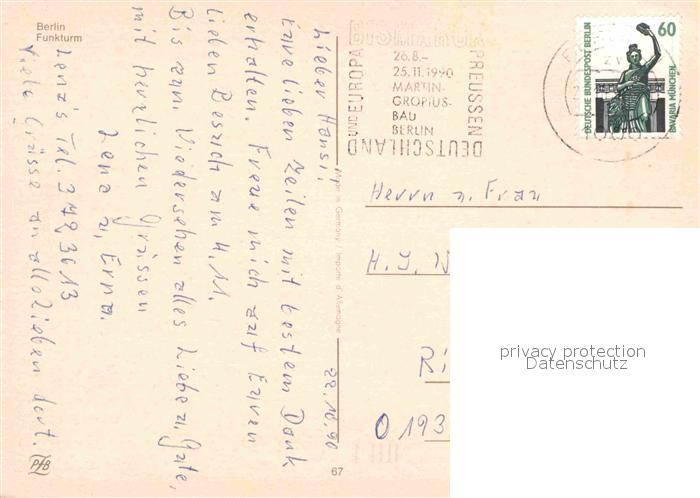 Berlin
Funkturm
22.10.90
Lieber Hansi,
Eure lieben Zeilen mit bestem Dank
erhalten. Freue mich auf Euren
lieben Besuch am 4.11.
Bis zum Wiedersehen alles Liebe u. Gute,
mit herzlichen Grüssen
Lena u. Erna.
Lena's Tel. 3 48 36 13
Viele Grüsse an alle Lieben dort.
PfB
Made in Germany / Importé d'Allemagne
67
BISMARCK
PREUSSEN
DEUTSCHLAND
UND EUROPA
26.8.–
25.11.1990
MARTIN-
GROPIUS-
BAU
BERLIN
60
DEUTSCHE BUNDESPOST BERLIN
BAVARIA MÜNCHEN
Herrn u. Frau
H. J.
O 193
privacy protection
Datenschutz